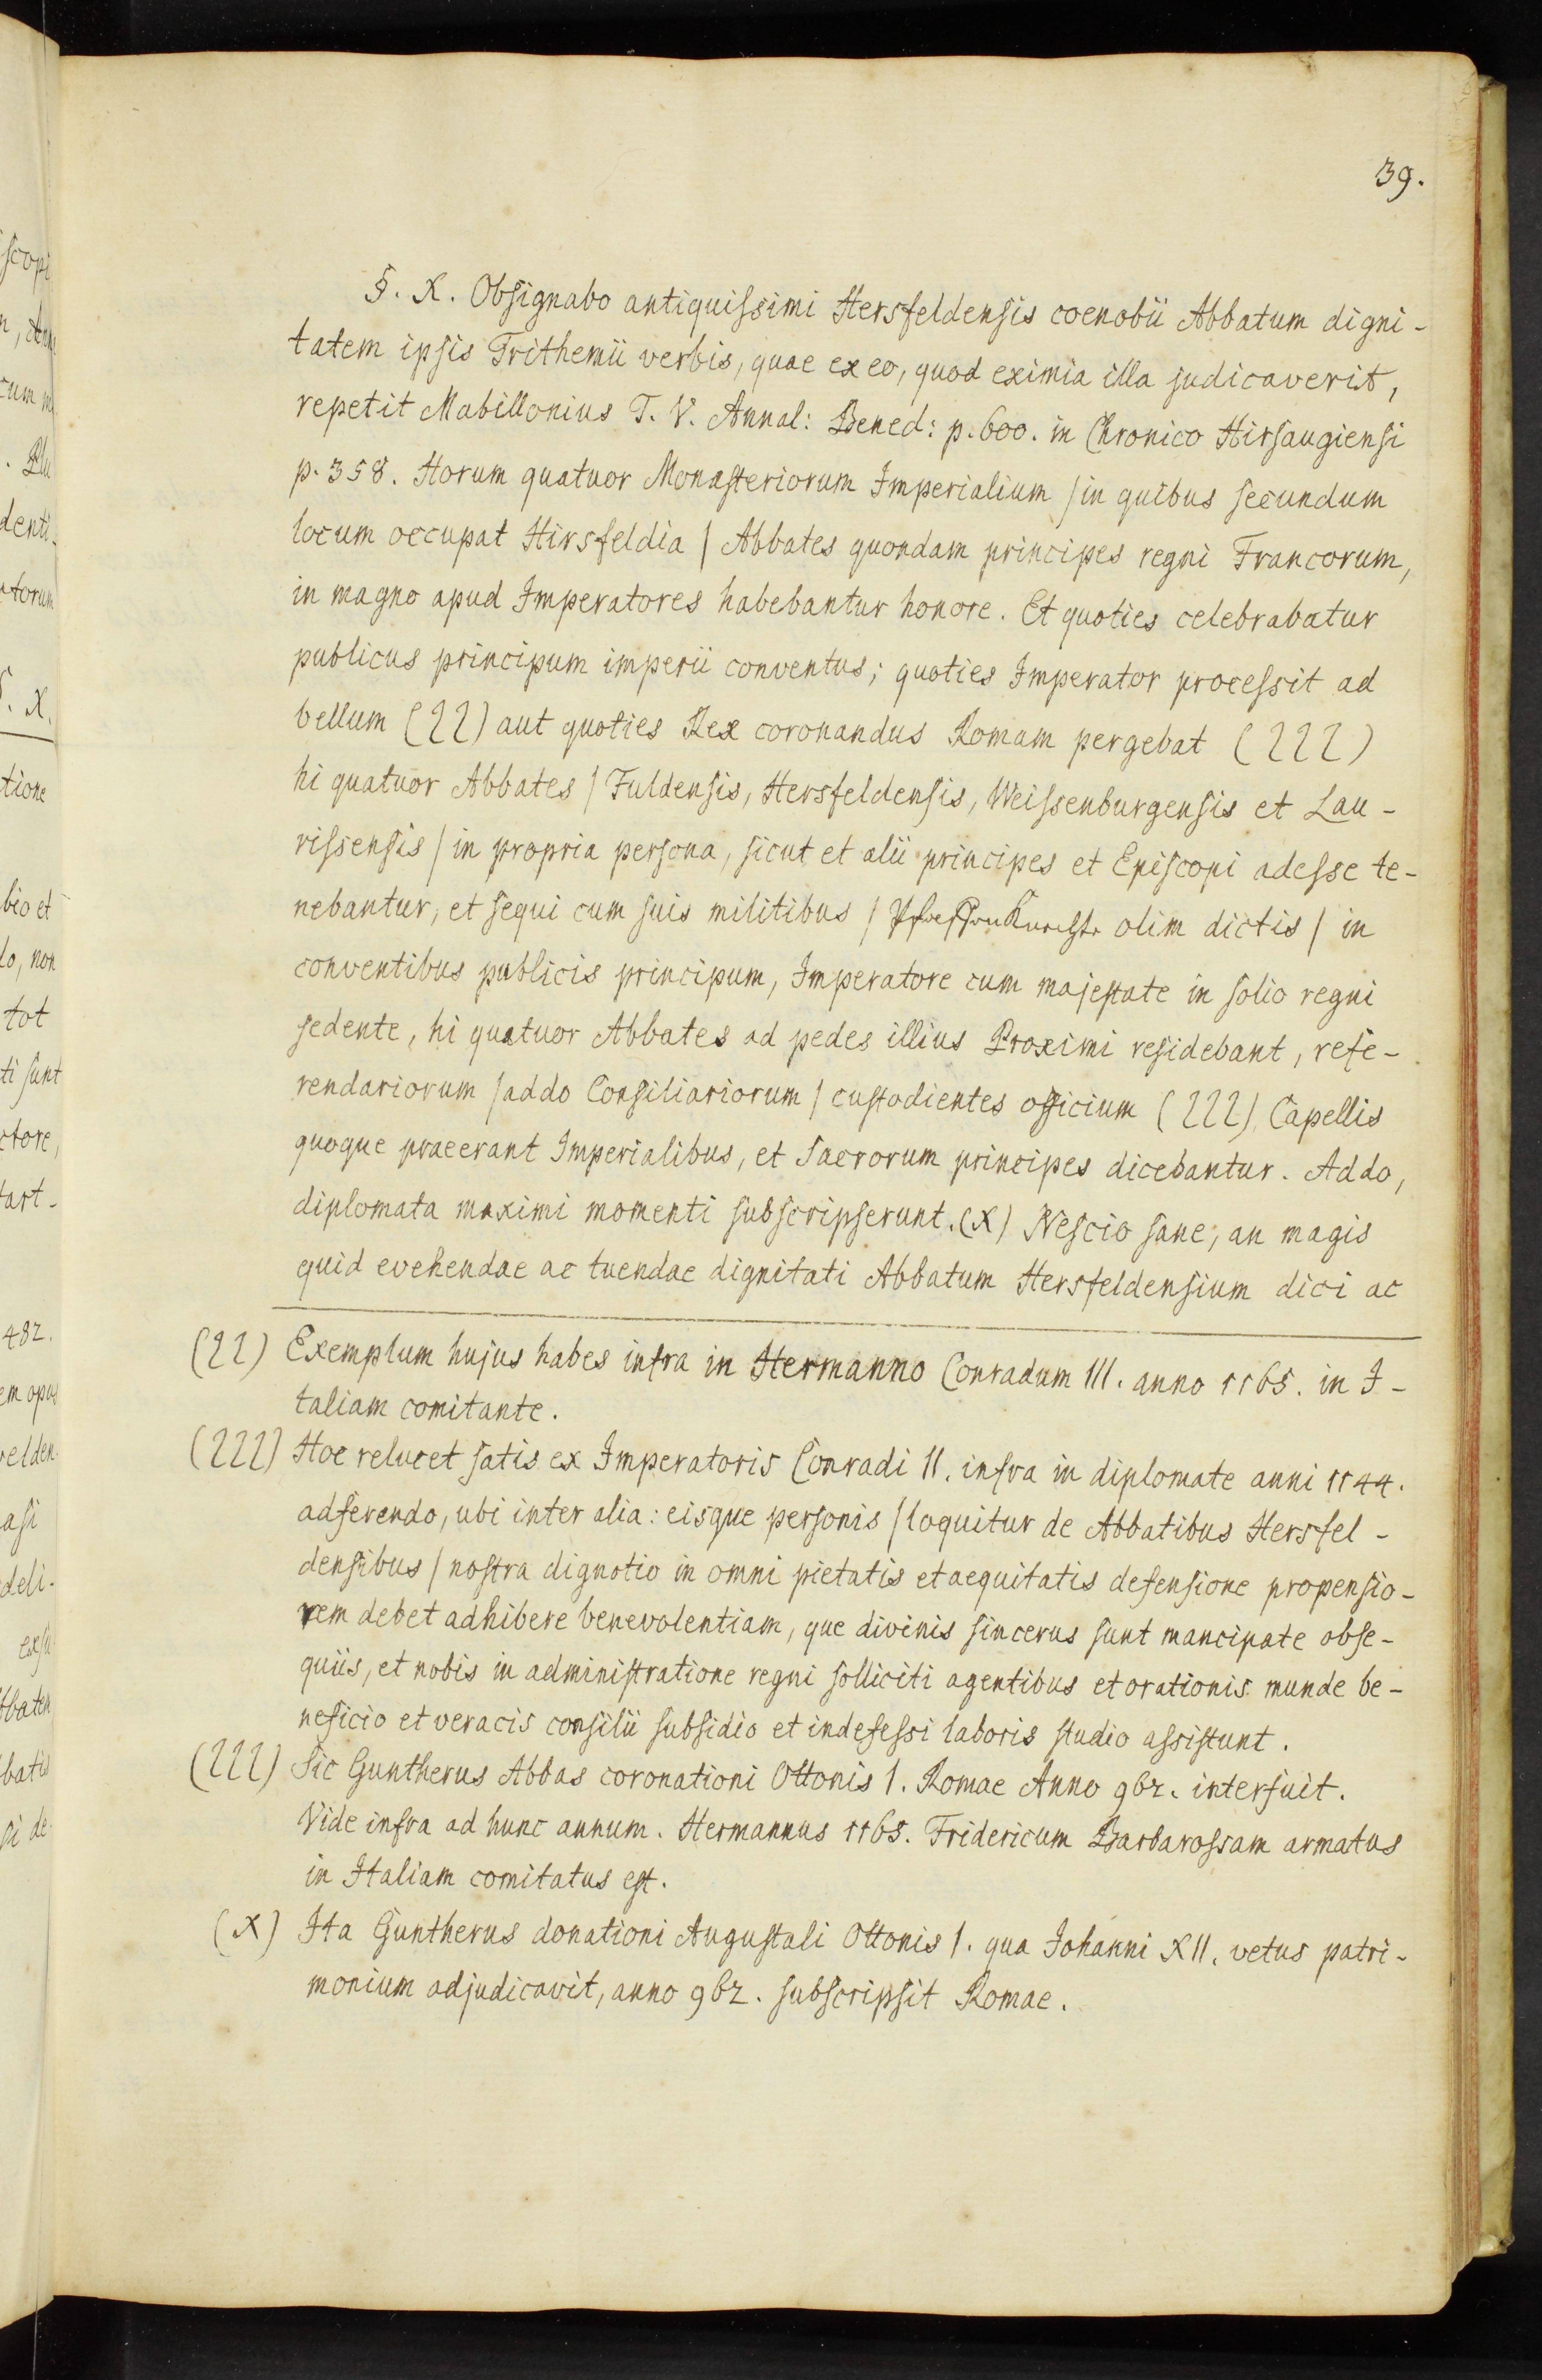 39.
§. X. Obsignabo antiquissimi Hersfeldensis coenobii Abbatum digni-
tatem ipsis Trithemii verbis, quae ex eo, quod eximia illa judicaverit,
repetit Mabillonius T. V. Annal: Bened: p. 600. in Chronico Hirsaugiensi
p. 358. Horum quatuor Monasteriorum Imperialium / in quibus secundum
locum occupat Hirsfeldia / Abbates quondam principes regni Francorum,
in magno apud Imperatores habebantur honore. Et quoties celebrabatur
publicus principum imperii conventus; quoties Imperator processit ad
bellum (22) aut quoties Rex coronandus Romam pergebat (222)
hi quatuor Abbates / Fuldensis, Hersfeldensis, Weissenburgensis et Lau-
rissensis / in propria persona, sicut et alii principes et Episcopi adesse te-
nebantur, et sequi cum suis militibus / olim dictis / in
conventibus publicis principum, Imperatore cum majestate in solio regni
sedente, hi quatuor Abbates ad pedes illius Proximi residebant, refe-
rendariorum / addo Consiliariorum / custodientes officium (222) Capellis
quoque praeerant Imperialibus, et Sacrorum principes dicebantur. Addo,
diplomata maximi momenti subscripserunt. (X) Nescio sane, an magis
quid evehendae ac tuendae dignitati Abbatum Hersfeldensium dici ac
(22) Exemplum hujus habes infra in Hermanno Conradum III. anno 1165. in I-
taliam comitante.
(222) Hoc relucet satis ex Imperatoris Conradi II. infra in diplomate anni 1144.
adferendo, ubi inter alia: eisque personis / loquitur de Abbatibus Hersfel-
densibus / nostra dignatio in omni pietatis et aequitatis defensione propensio-
rem debet adhibere benevolentiam, que divinis sincerus sunt mancipate obse-
quiis, et nobis in administratione regni solliciti agentibus et orationis munde be-
neficio et veracis consilii subsidio et indefessi laboris studio assistunt.
(222) Sic Guntherus Abbas coronationi Ottonis I. Romae Anno 962. interfuit.
Vide infra ad hunc annum. Hermannus 1165. Fridericum Barbarossam armatus
in Italiam comitatus est.
(X) Ita Guntherus donationi Augustali Ottonis I. qua Johanni XII. vetus patri-
monium adjudicavit, anno 962. subscripsit Romae.